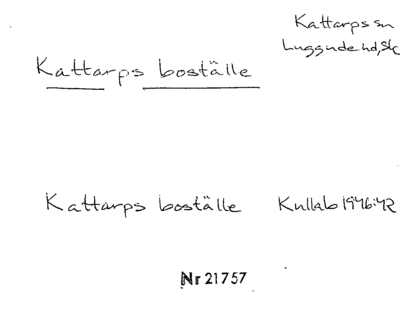 Kattarps sn
Luggude hd, Sk
Kattarps boställe
Kattarps boställe Kullab 1946:42
Nr 21757